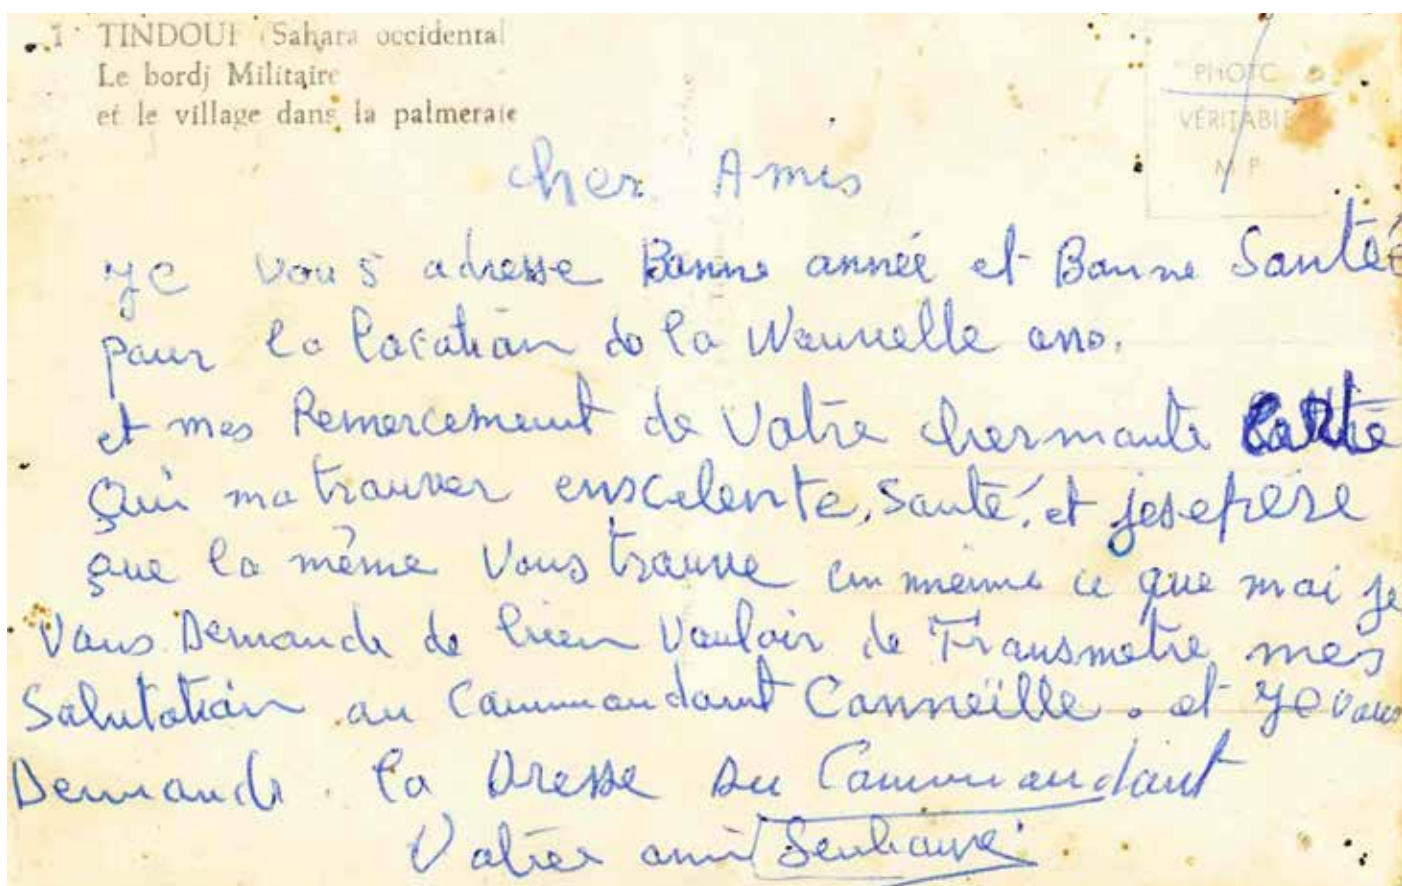 1 TINDOUF (Sahara occidental
Le bordj Militaire
et le village dans la palmeraie
PHOTO
VÉRITABLE
M P
cher Amis
Je vous adresse Bonne année et Bonne Santé
pour la location do la Nouvelle ano.
et mes Remercement de Votre chermante
Qui ma trouver enscelente, Santé, et jesepère
que la même Vous trouve en meme ce que moi je
Vous Demande de bien Vouloir de Transmetre mes
Salutation au Commandant Conneïlle. et Je vous
Demande la Dresse du Commandant
Votre ami